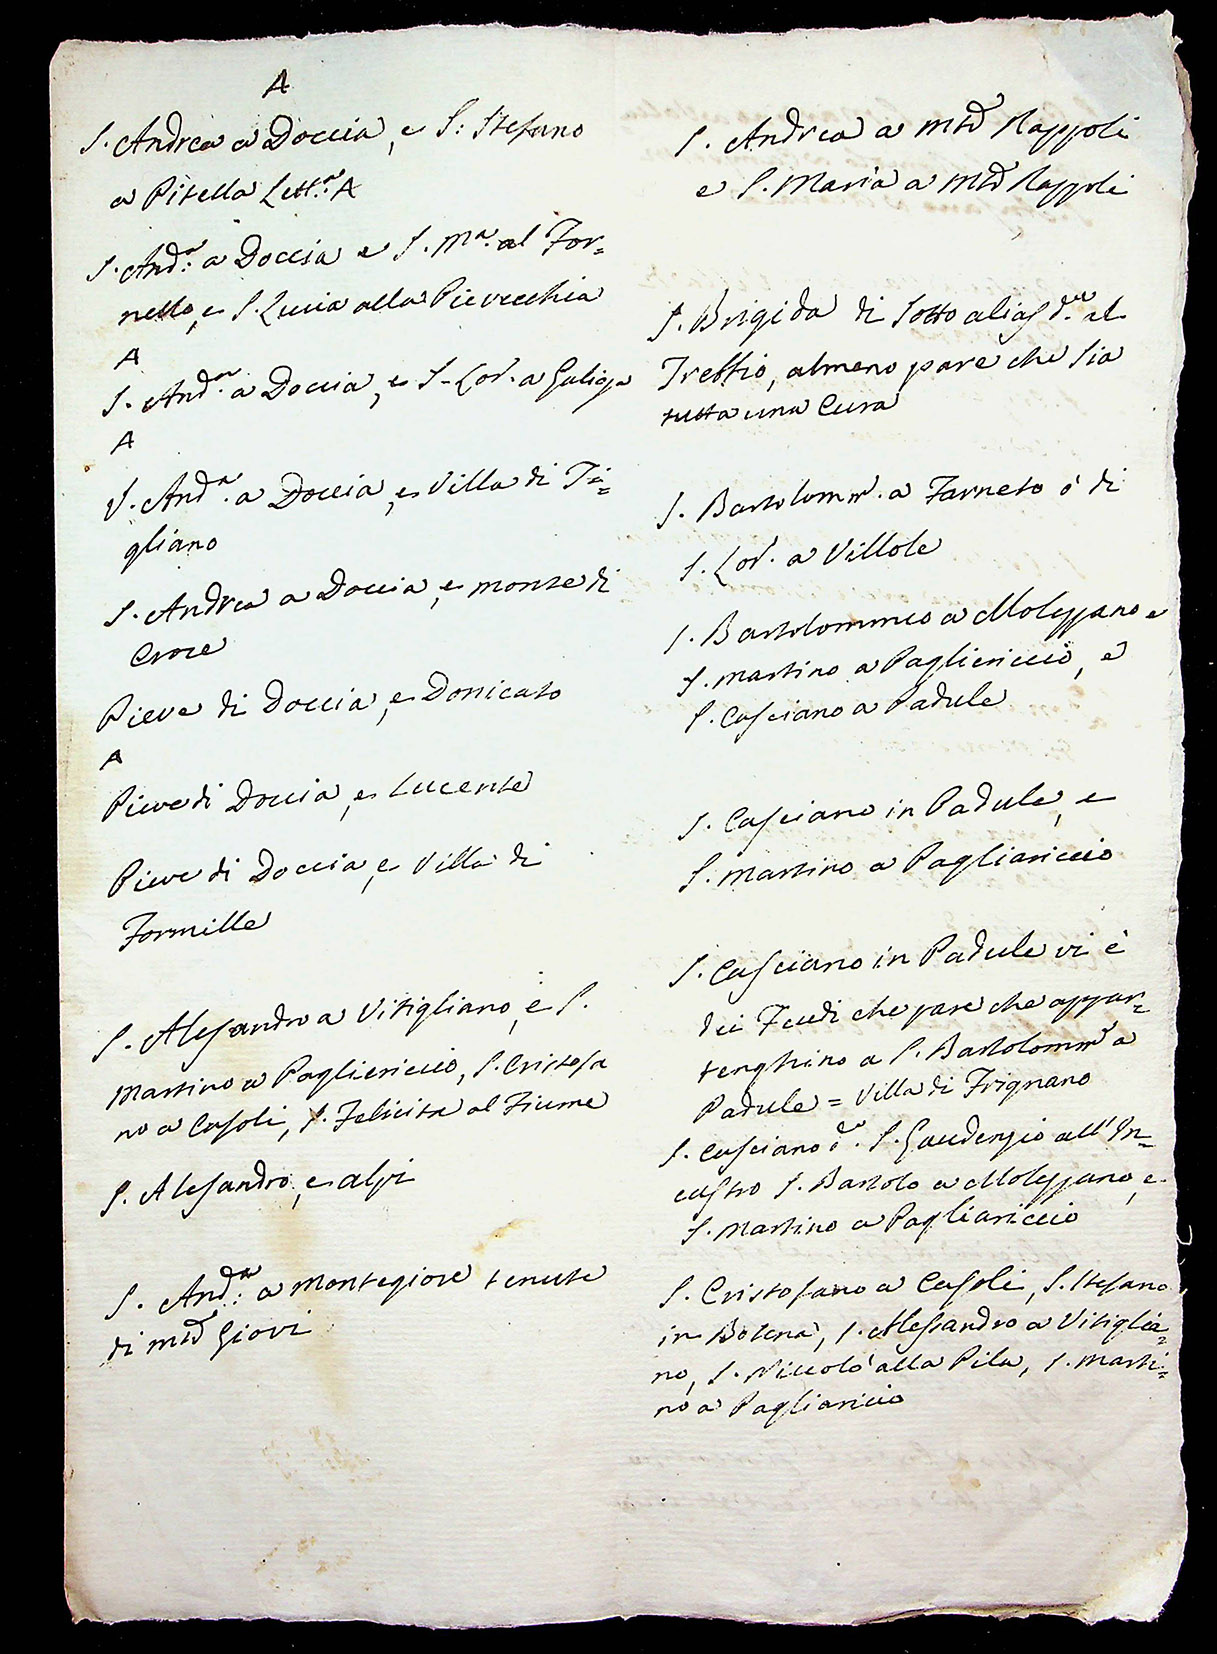 A
S. Andrea a Doccia, e S: Stefano
a Pitella Lett.ª A
S. And.ª a Doccia e S. Mª. al For=
nello, e S. Lucia alla Pievecchia
A
S. And.ª a Doccia, e S. Lor. a Galiga
A
S. And.ª a Doccia, e Villa di Ti=
gliano
S. Andrea a Doccia, e monte di
Croce
Pieve di Doccia, e Donicato
A
Pieve di Doccia, e Lucente
Pieve di Doccia, e Villa di
Formille
S. Alesandro a Vitigliano, e S.
Martino a Pagliericcio, S. Cristofa
no a Casoli, S. Felicita al Fiume
S. Alesandro, e alpi
S. And.ª: a Montegiove tenute
di mtd Giovi
S. Andrea a mtd Rappoli
e S. Maria a mtd Rappoli
S. Brigida di Sotto alias d.ª al
Trebbio, almeno pare che sia
tutta una Cura
S. Bartolomm. a Farneto ò di
S. Lor. a Villole
S. Bartolommeo a Molezzano e
S. Martino a Pagliericcio, e
S. Casciano a Padule
S. Casciano in Padule, e
S. Martino a Pagliariccio
S. Casciano in Padule vi è
dei Feudi che pare che appar=
tenghino a S. Bartolomm. a
Padule = Villa di Frignano
S. Casciano d.º S. Gaudenzio all'In=
castro S. Bartolo a Molezzano, e
S. Martino a Pagliariccio
S. Cristofano a Casoli, S. Stefano
in Botena, S. Alessandro a Vitiglia=
no, S. Niccolò alla Pila, S. Marti=
no a Pagliaricio